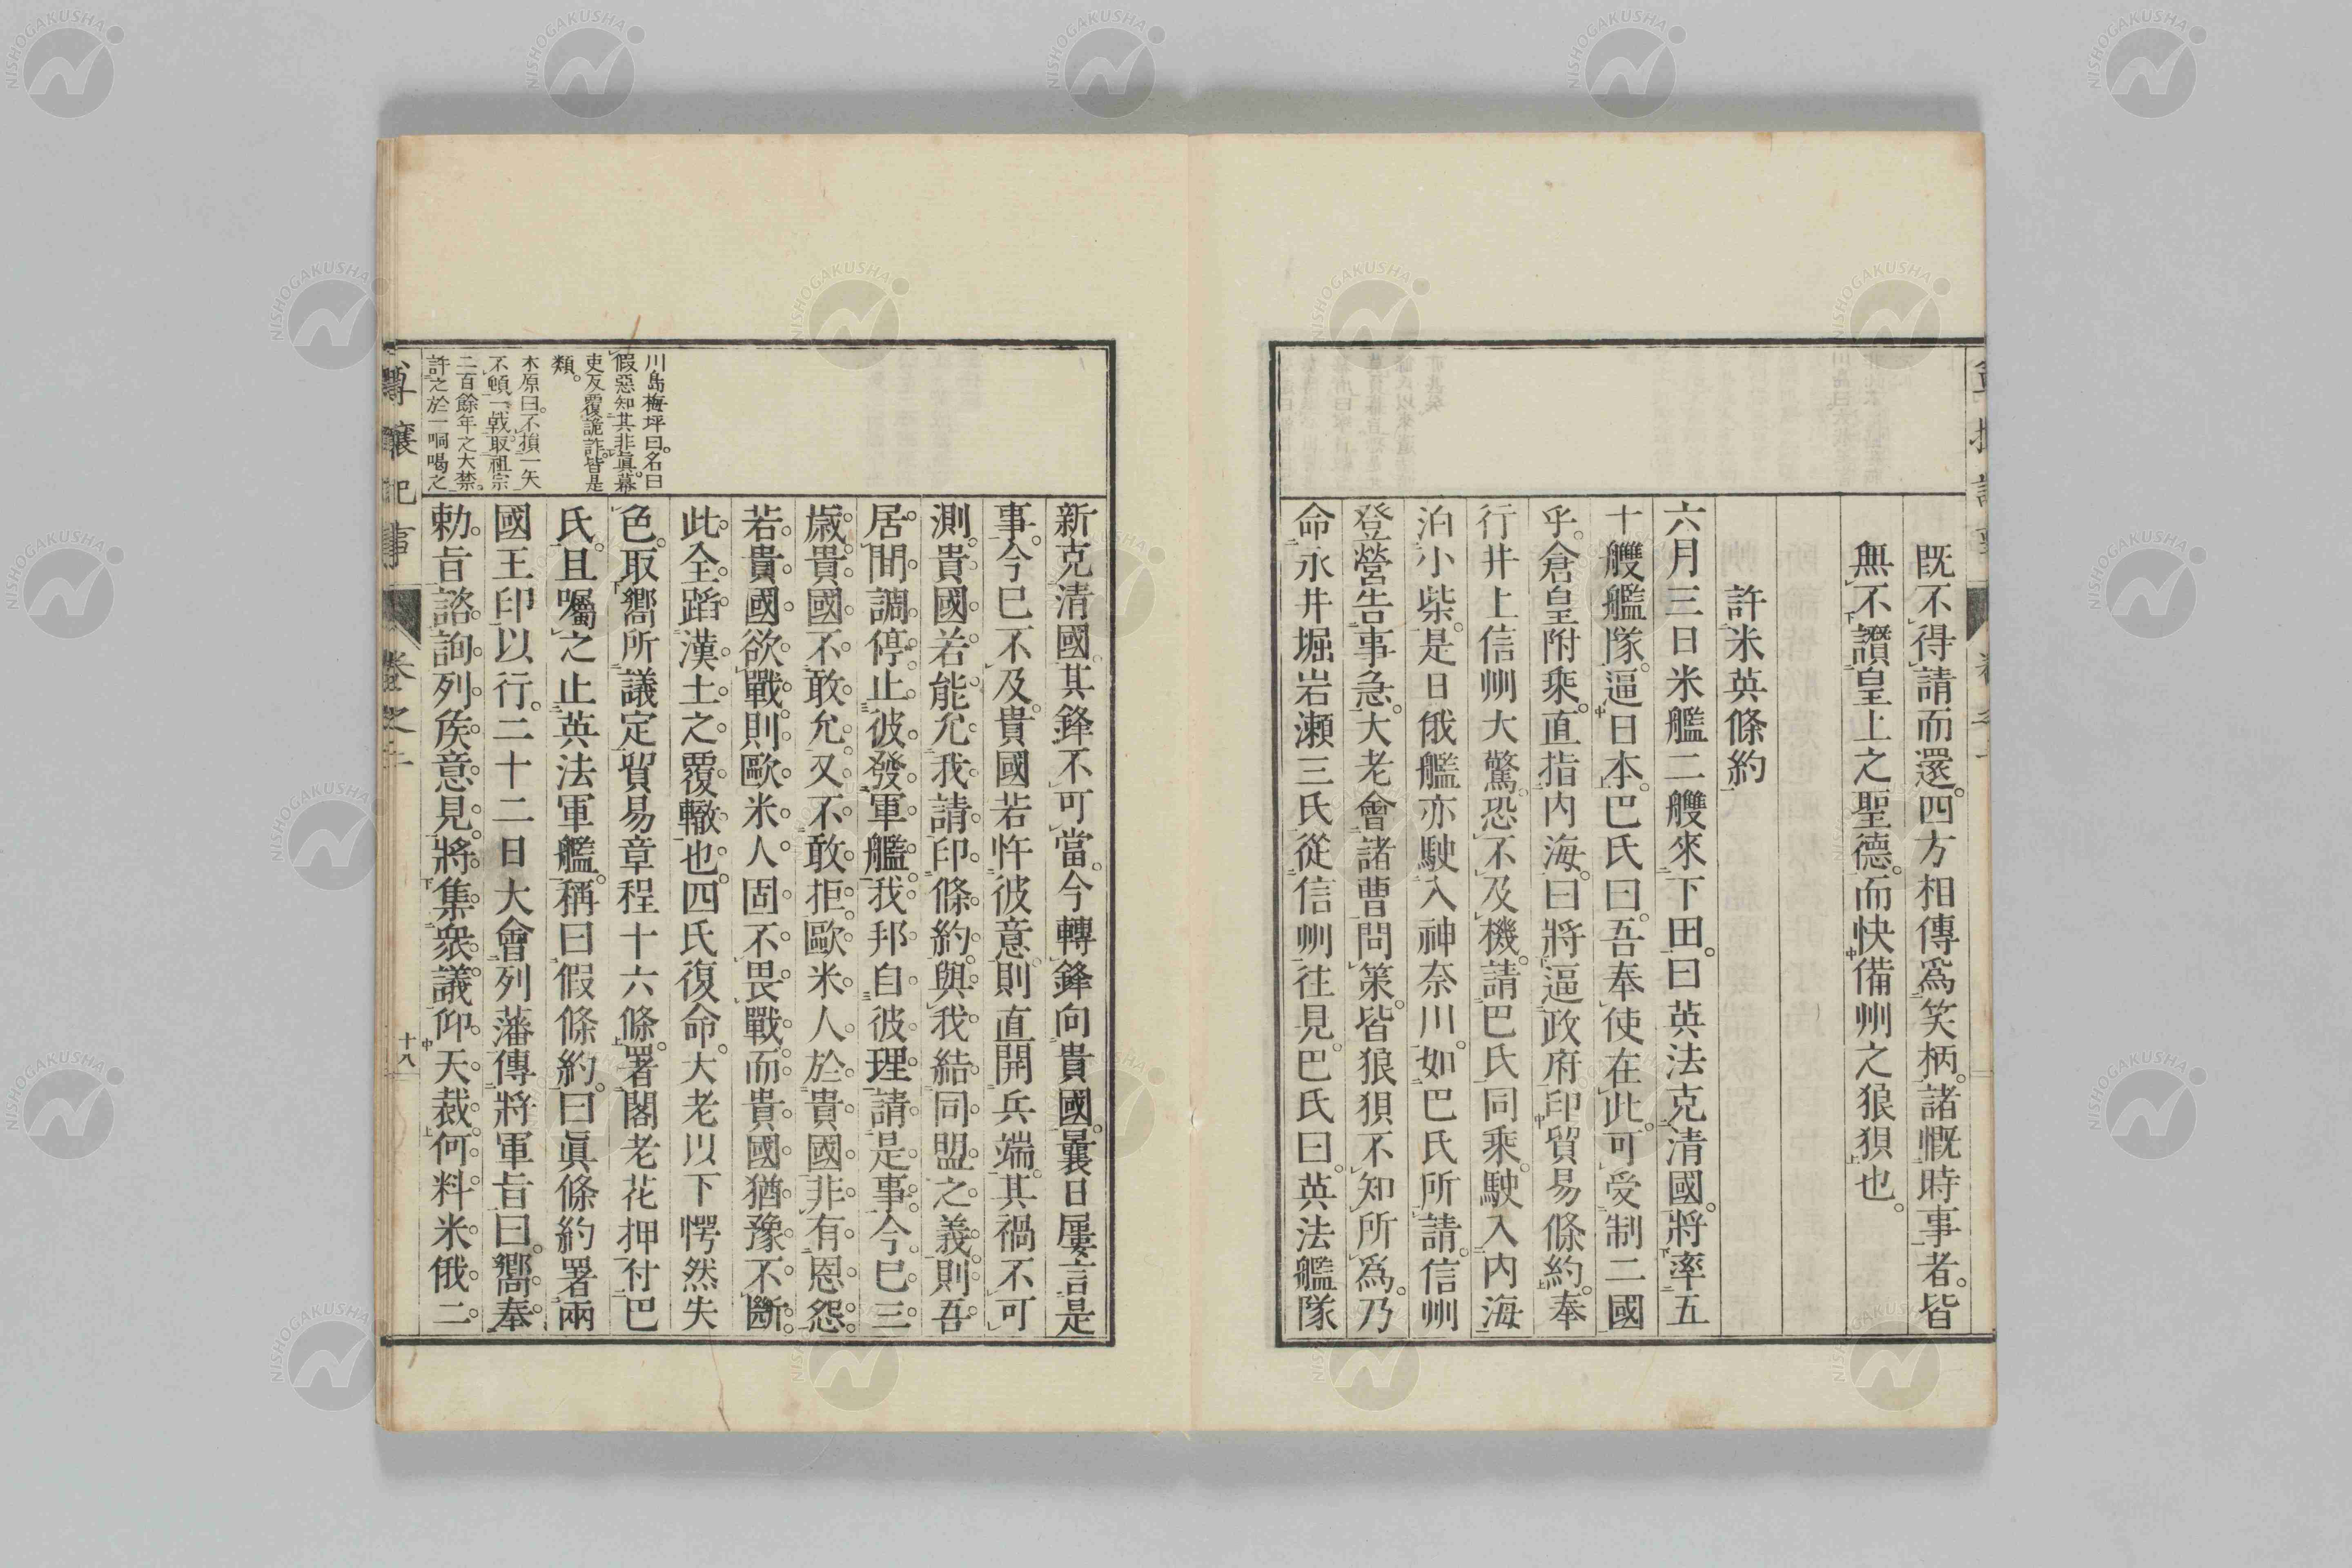 既不得請而還。四方相傳爲笑柄。諸慨時事者。皆
無不讚皇上之聖德。而快備州之狼狽也。
許米英條約
六月三日米艦二艘來下田。曰英法克清國。將率五
十艘艦隊。逼日本。巴氏曰。吾奉使在此。可受制二國
乎。倉皇附乘。直指內海。曰將逼政府印貿易條約。奉
行井上信州大驚。恐不及機。請巴氏同乘。駛入內海
泊小柴。是日俄艦亦駛入神奈川。如巴氏所請。信州
登營告事急。大老會諸曹問策。皆狼狽不知所爲。乃
命永井堀岩瀨三氏從信州往見。巴氏曰。英法艦隊
新克清國。其鋒不可當。今轉鋒向貴國。曩日屢言是
事。今已不及。貴國若忤彼意。則直開兵端。其禍不可
測。貴國若能允我請印條約。與我結同盟之義。則吾
居間調停。止彼發軍艦。我邦自彼理請是事。今已三
歲。貴國不敢允。又不敢拒。歐米人於貴國非有恩怨。
若貴國欲戰。則歐米人固不畏戰。而貴國猶豫不斷。
此全蹈漢土之覆轍也。四氏復命。大老以下愕然失
色。取嚮所議定貿易章程十六條。署閣老花押付巴
氏。且囑之止英法軍艦。稱曰假條約。曰眞條約署兩
國王印以行。二十二日大會列藩傳將軍旨曰。嚮奉
勅旨諮詢列矦意見。將集衆議仰天裁。何料米俄二
川島梅坪曰。名曰
假惡知其非眞。幕
吏反覆詭詐。皆是
類。
木原曰。不損一矢
不頓一戟。取祖宗
二百餘年之大禁。
許之於一恫喝之
尊攘紀事
卷之二
十八
NISHOGAKUSHA